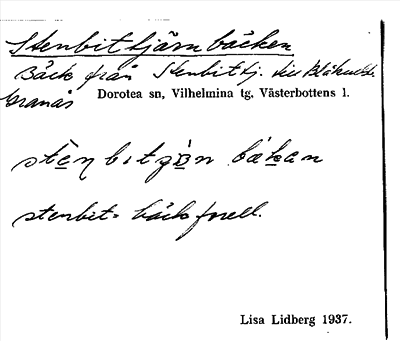 Stenbittjärnbäcken
Bäck från Stenbittj. till
Granås
Dorotea sn, Vilhelmina tg, Västerbottens l.
stenbit = bäckforell.
Lisa Lidberg 1937.